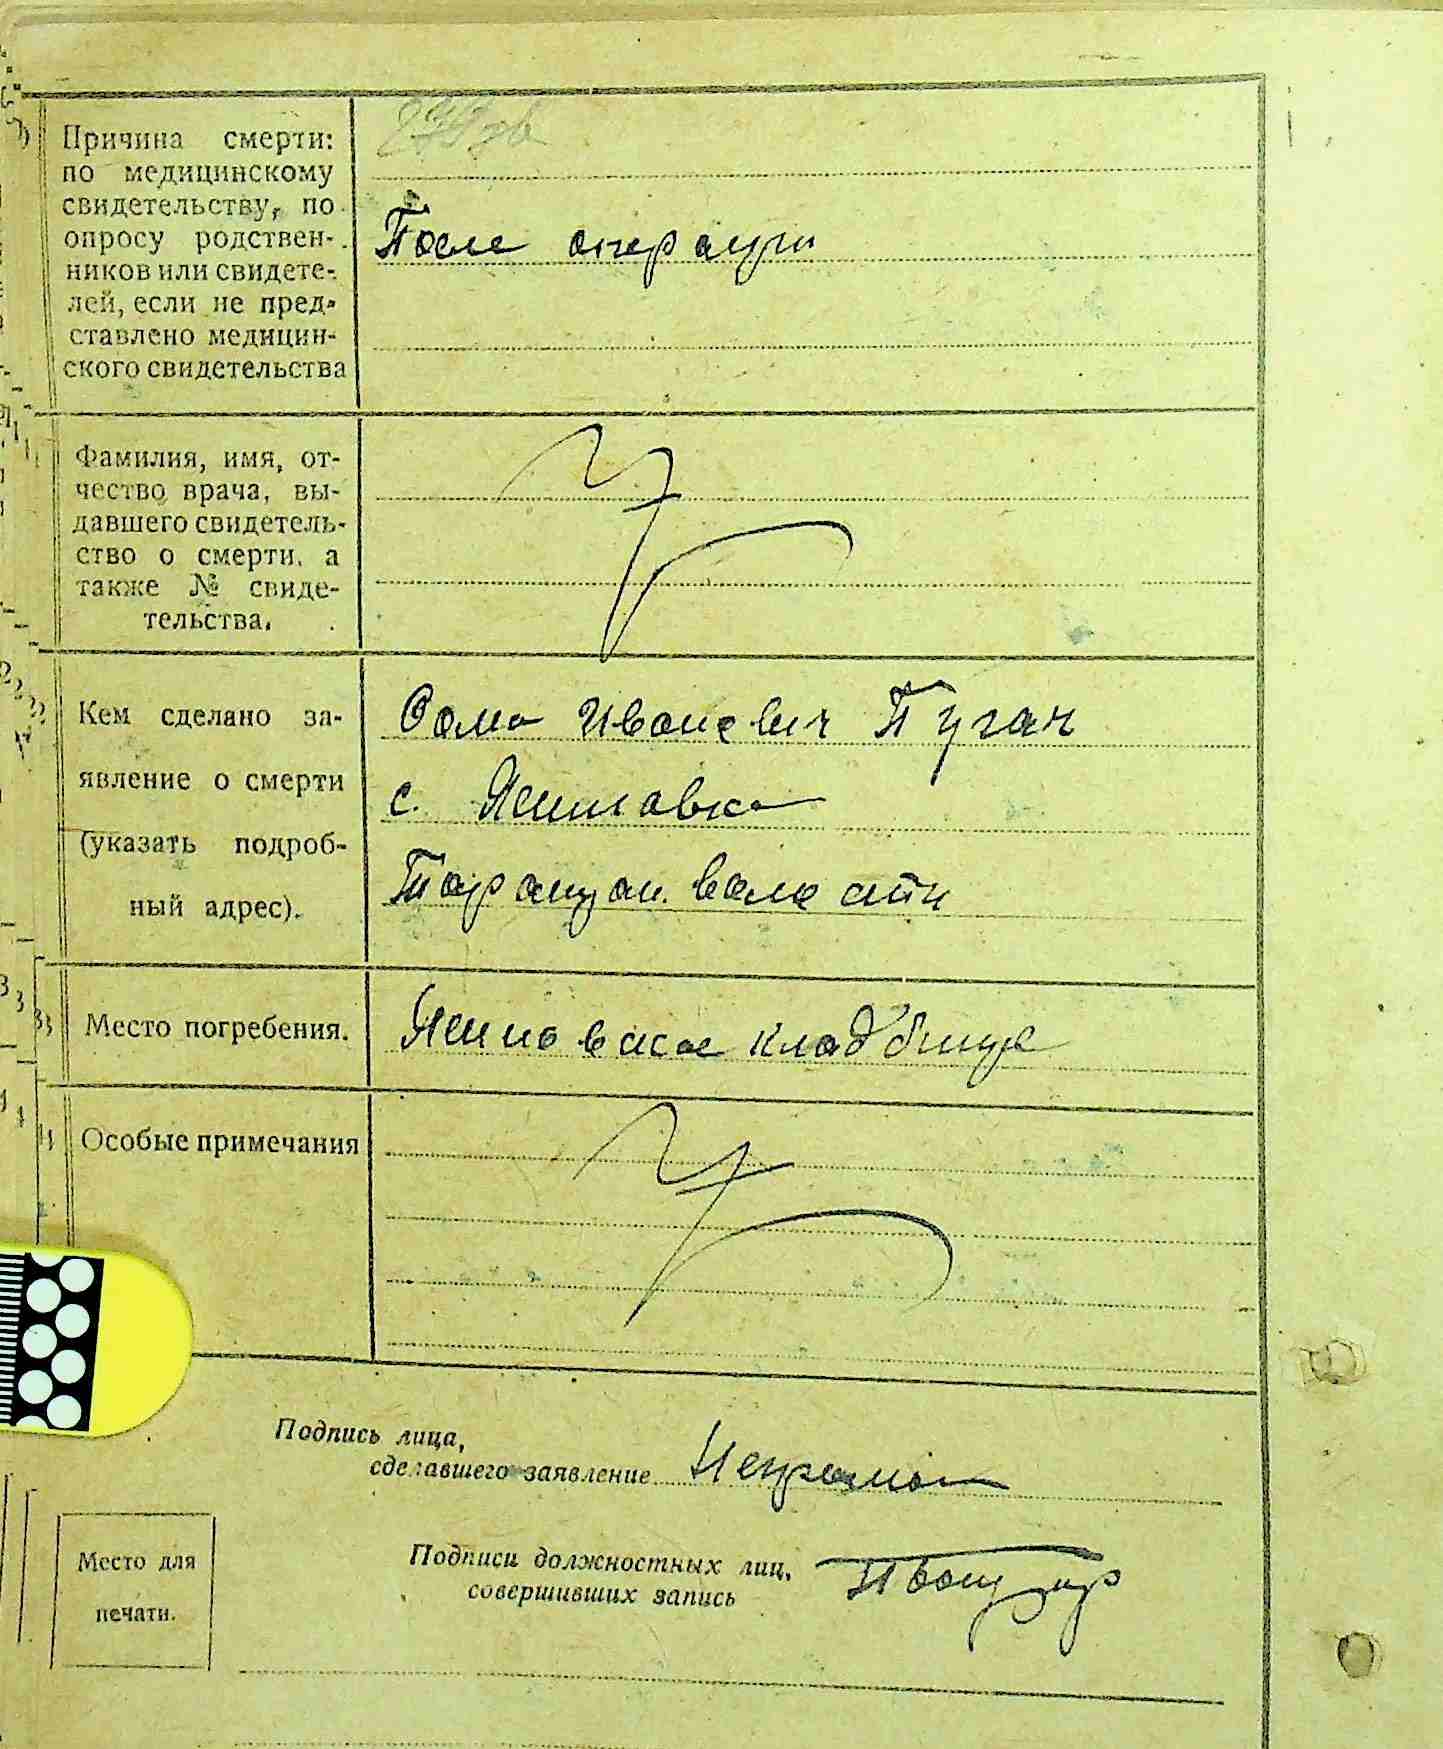 Причина смерти:
по медицинскому
свидетельству, по
опросу родствен-
ников или свидете-
лей, если не пред-
ставлено медицин-
ского свидетельства
После операции
Фамилия, имя, от-
чество врача, вы-
давшего свидетель-
ство о смерти, а
также № свиде-
тельства.
Кем сделано за-
явление о смерти
(указать подроб-
ный адрес).
Фома Иванович Пугач
с.
волости
Место погребения.
кладбище
Особые примечания
Подпись лица,
сделавшего заявление
Неграмот
Подписи должностных лиц,
совершивших запись
Место для
печати.